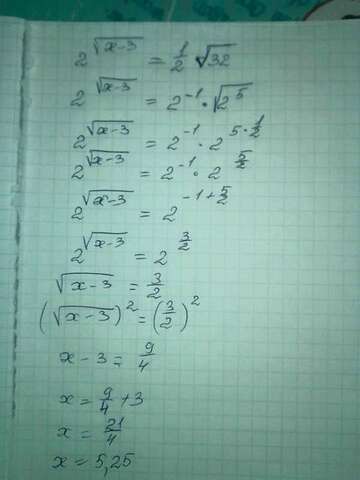 2^√(x-3) = 1/2 √32
2^√(x-3) = 2^-1 · √(2^5)
2^√(x-3) = 2^-1 · 2^(5·1/2)
2^√(x-3) = 2^-1 · 2^(5/2)
2^√(x-3) = 2^(-1+5/2)
2^√(x-3) = 2^(3/2)
√(x-3) = 3/2
(√(x-3))^2 = (3/2)^2
x-3 = 9/4
x = 9/4 + 3
x = 21/4
x = 5,25